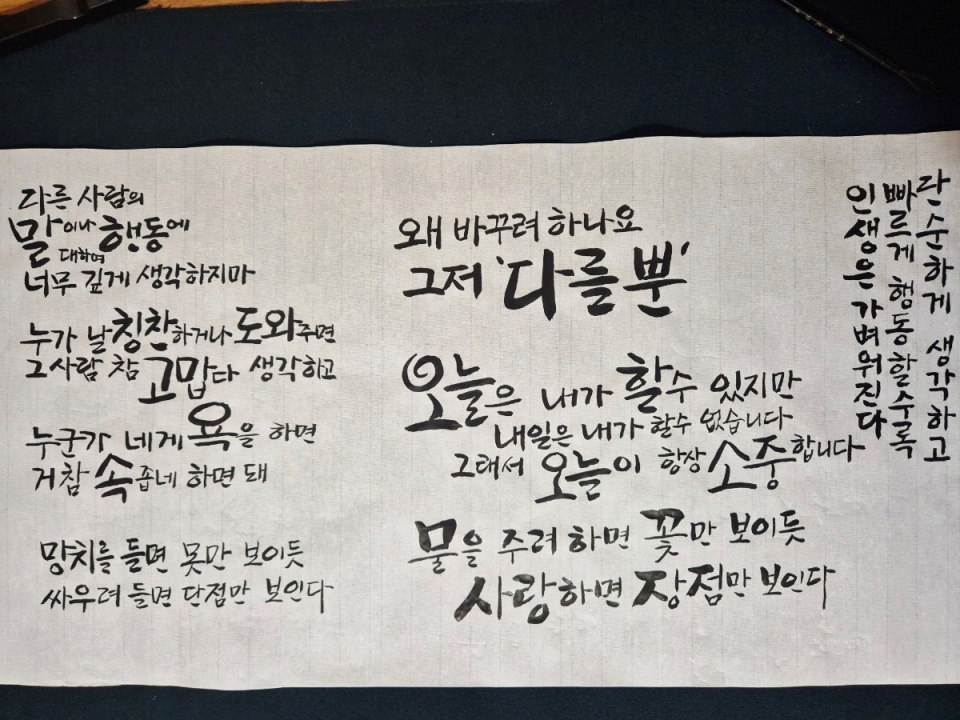 다른 사람의
말이나 행동에
대하여
너무 깊게 생각하지마
누가 날 칭찬하거나 도와주면
그사람 참 고맙다 생각하고
누군가 네게 욕을 하면
거참 속좁네 하면 돼
망치를 들면 못만 보이듯
싸우려 들면 단점만 보인다
왜 바꾸려 하나요
그저 '다를 뿐'
오늘은 내가 할수 있지만
내일은 내가 할수 없습니다
그래서 오늘이 항상 소중합니다
물을 주려 하면 꽃만 보이듯
사랑하면 장점만 보인다
단순하게 생각하고
빠르게 행동할수록
인생은 가벼워진다